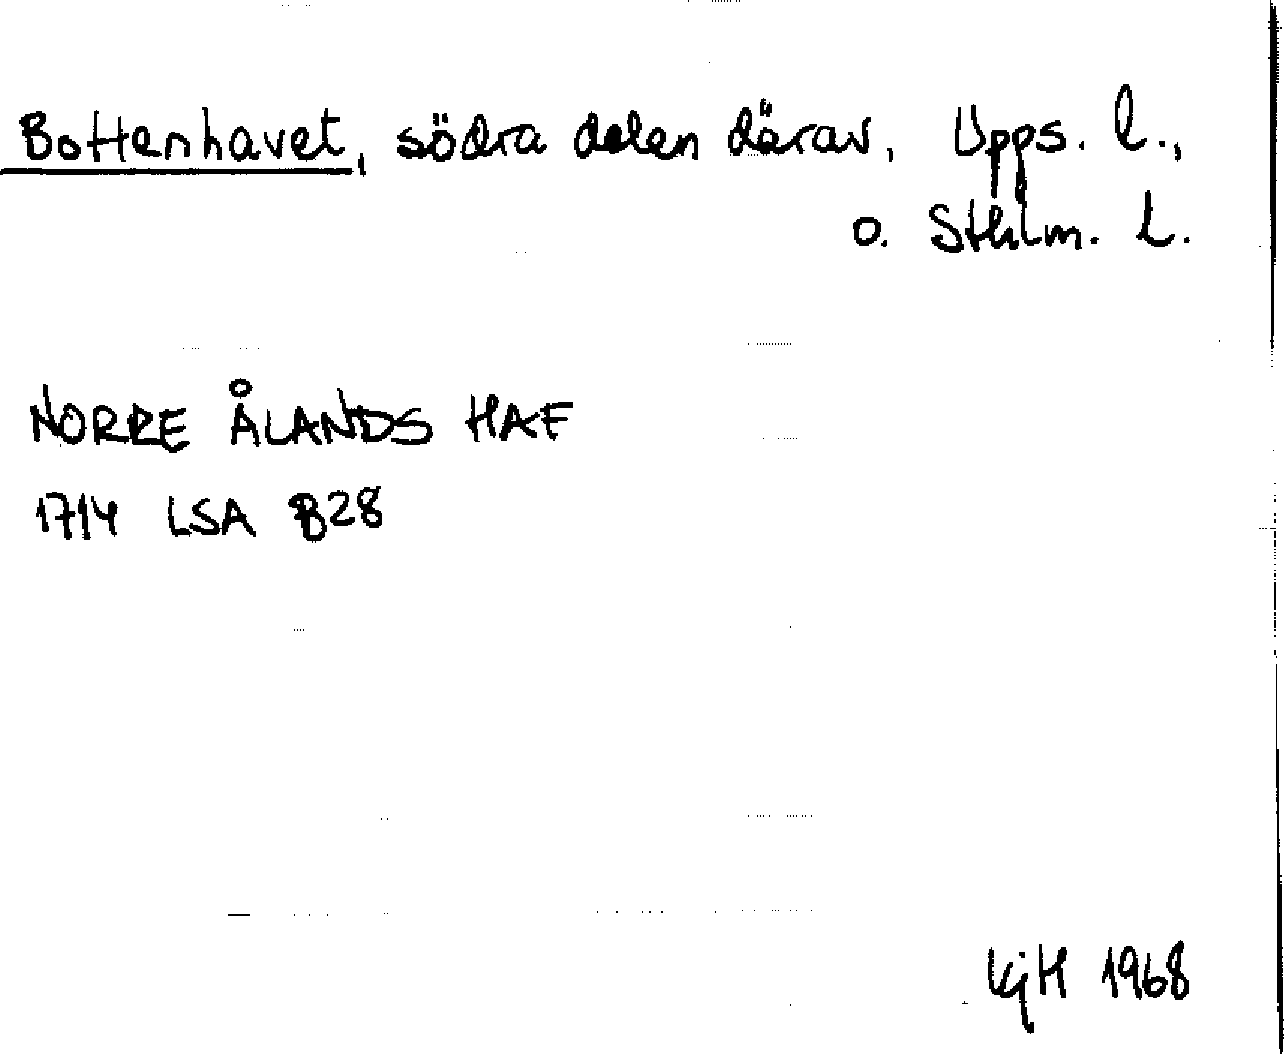 Bottenhavet, södra delen därav, Upps. l.,
o. Sthlm. L.
NORRE ÅLANDS HAF
1714 LSA B28
KjH 1968